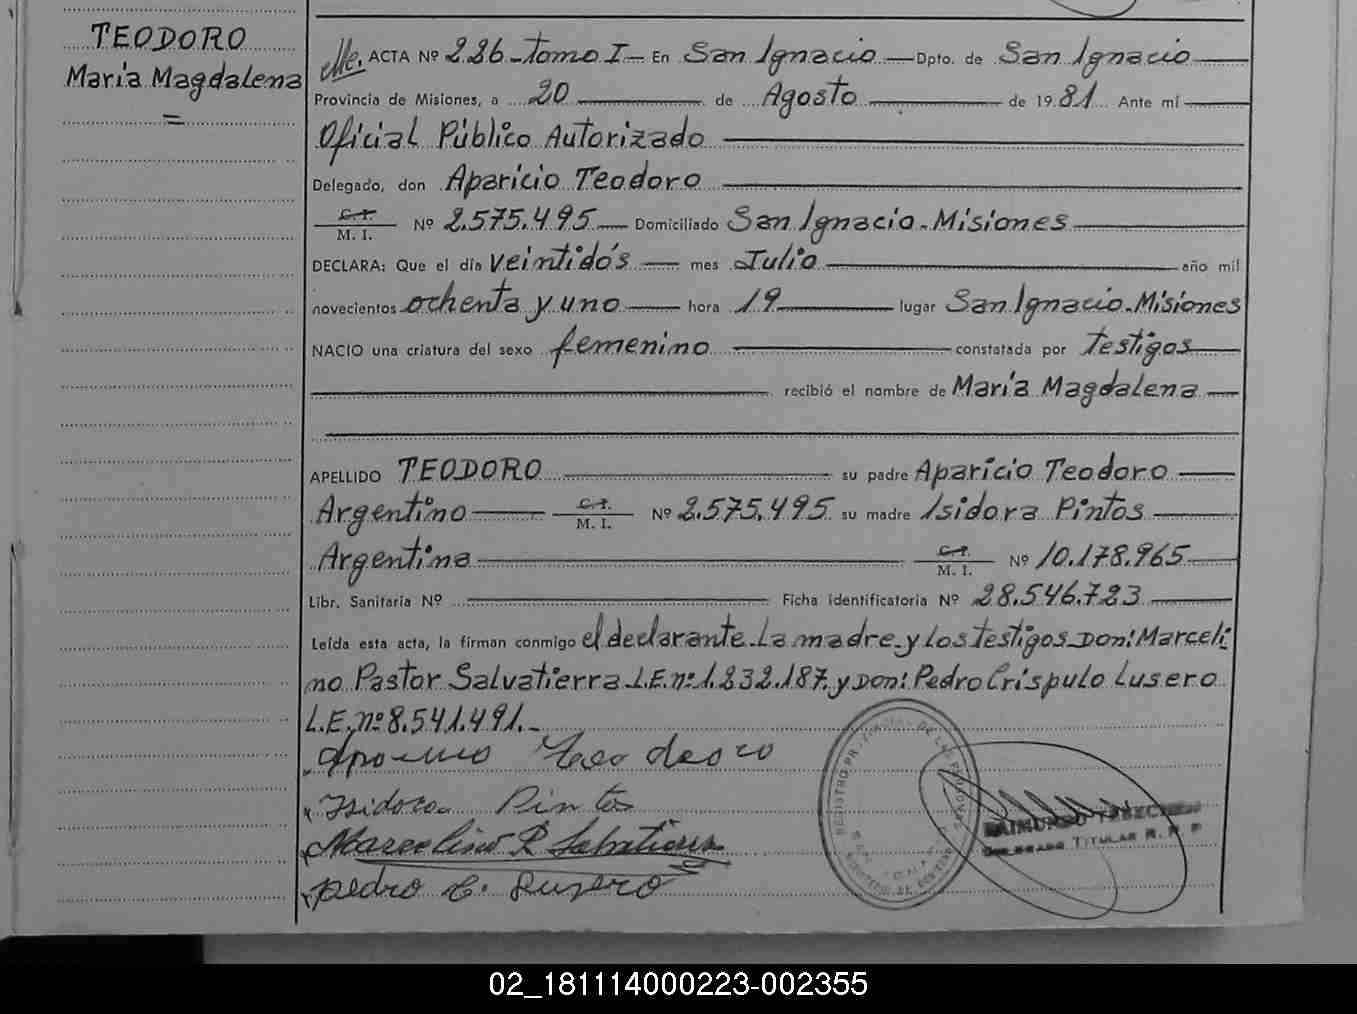 TEODORO
María Magdalena
=
ACTA Nº 226 - Tomo I - En San Ignacio - Dpto. de San Ignacio
Provincia de Misiones, a 20 de Agosto de 1981 Ante mí
Oficial Público Autorizado
Delegado, don Aparicio Teodoro
C.I. / M. I. Nº 2.575.495 Domiciliado San Ignacio - Misiones
DECLARA: Que el día veintidós mes Julio año mil
novecientos ochenta y uno hora 19 lugar San Ignacio - Misiones
NACIO una criatura del sexo femenino constatada por testigos
recibió el nombre de María Magdalena
APELLIDO TEODORO su padre Aparicio Teodoro
Argentino C.I. / M. I. Nº 2.575.495 su madre Isidora Pintos
Argentina C.I. / M. I. Nº 10.178.965
Libr. Sanitaria Nº Ficha identificatoria Nº 28.546.723
Leída esta acta, la firman conmigo el declarante - La madre - y los testigos Don: Marceli
no Pastor Salvatierra L.E. nº 1.232.187. y Don: Pedro Críspulo Lusero
L.E. nº 8.541.491.-
Aparicio Teodoro
Isidora Pintos
Marcelino P. Salvatierra
Pedro C. Lusero
TITULAR R. P. P
02_181114000223-002355